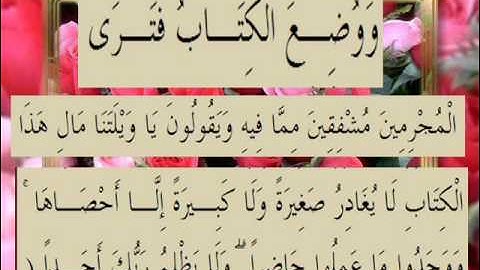 وَوُضِـــعَ الْكِتَـــابُ فَتَـرَى
الْمُجْرِمِينَ مُشْفِقِينَ مِمَّا فِيهِ وَيَقُولُونَ يَا وَيْلَتَنَا مَالِ هَذَا
الْكِتَابِ لَا يُغَادِرُ صَغِيرَةً وَلَا كَبِيـــرَةً إِلَّـــا أَحْصَـــاهَا ۚ
وَوَجَدُوا مَا عَمِلُوا حَاضِراً ۗ وَلَا يَظْلِمُ رَبُّكَ أَحَـــداً (